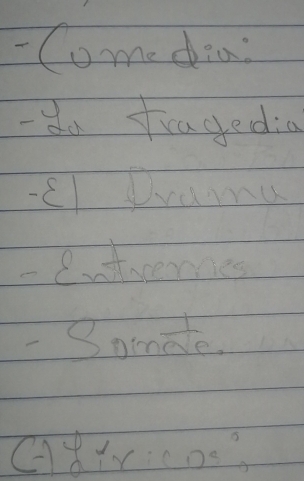 - Comedia:
- La tragedia
- El Drama
- Entremes
- Somete.
C) Líricos: